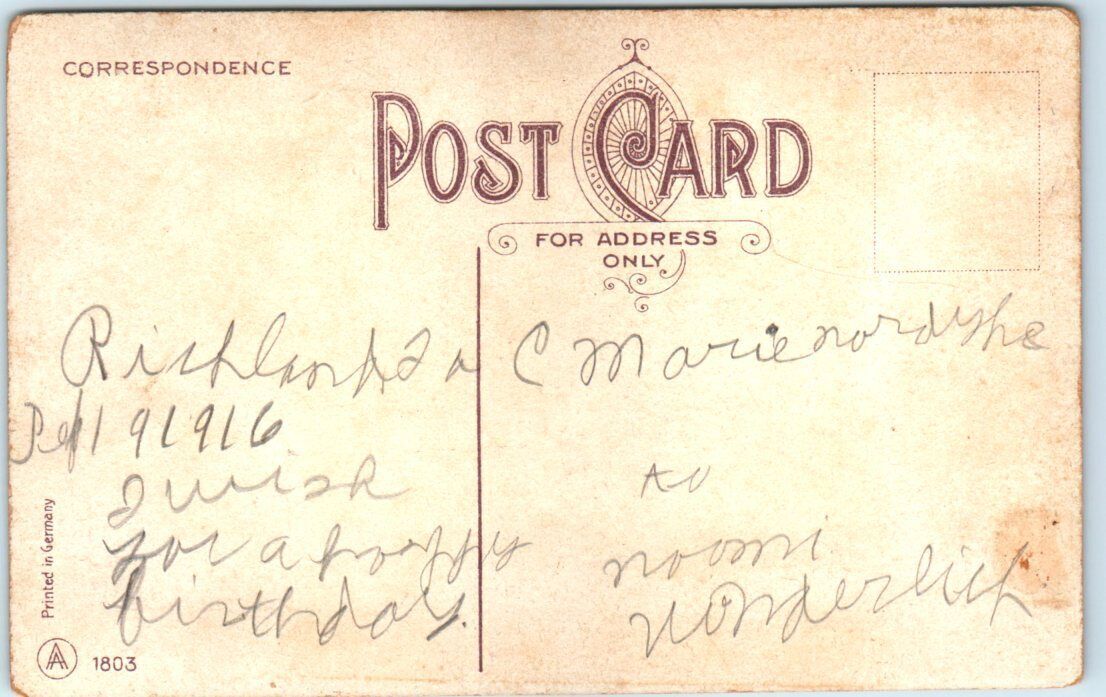 CORRESPONDENCE
POST CARD
FOR ADDRESS
ONLY
Richland Ia
1916
I wish
you a happy
birthday.
C Marie
to
noomi
vonderlich
Printed in Germany
AA 1803